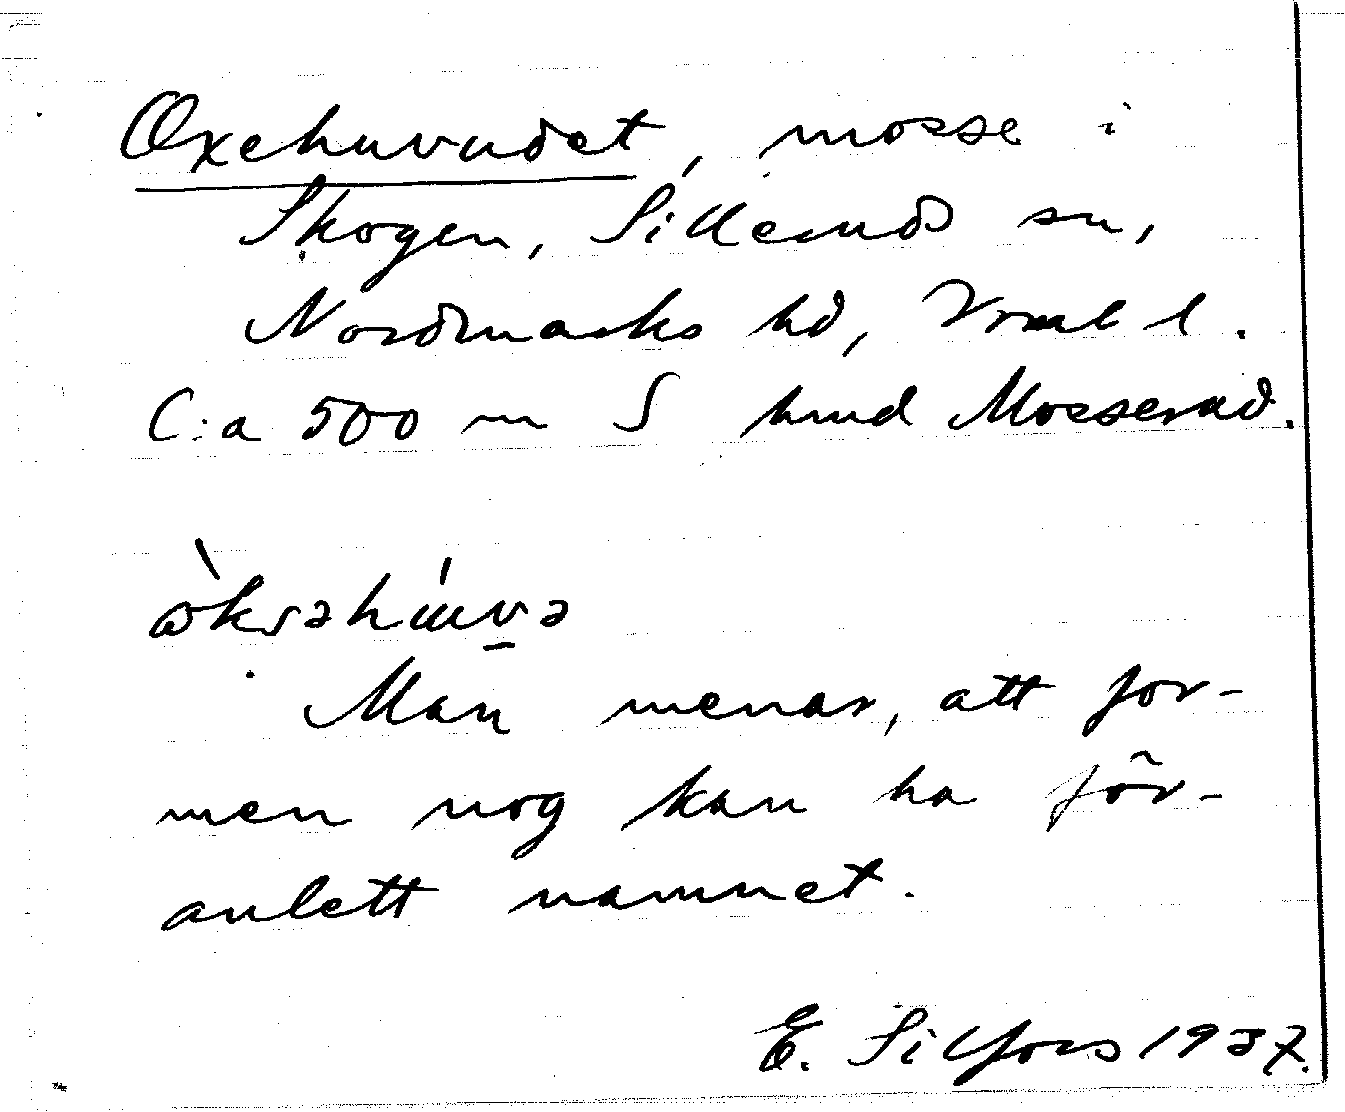 Oxehuvudet, mosse i
Skogen, Sillerud sn,
Nordmarks hd, Vrml l.
C:a 500 m S hmd Mosserud.
òksəhúvə
Man menar, att for-
men nog kan ha för-
anlett namnet.
E. Silfors 1937.